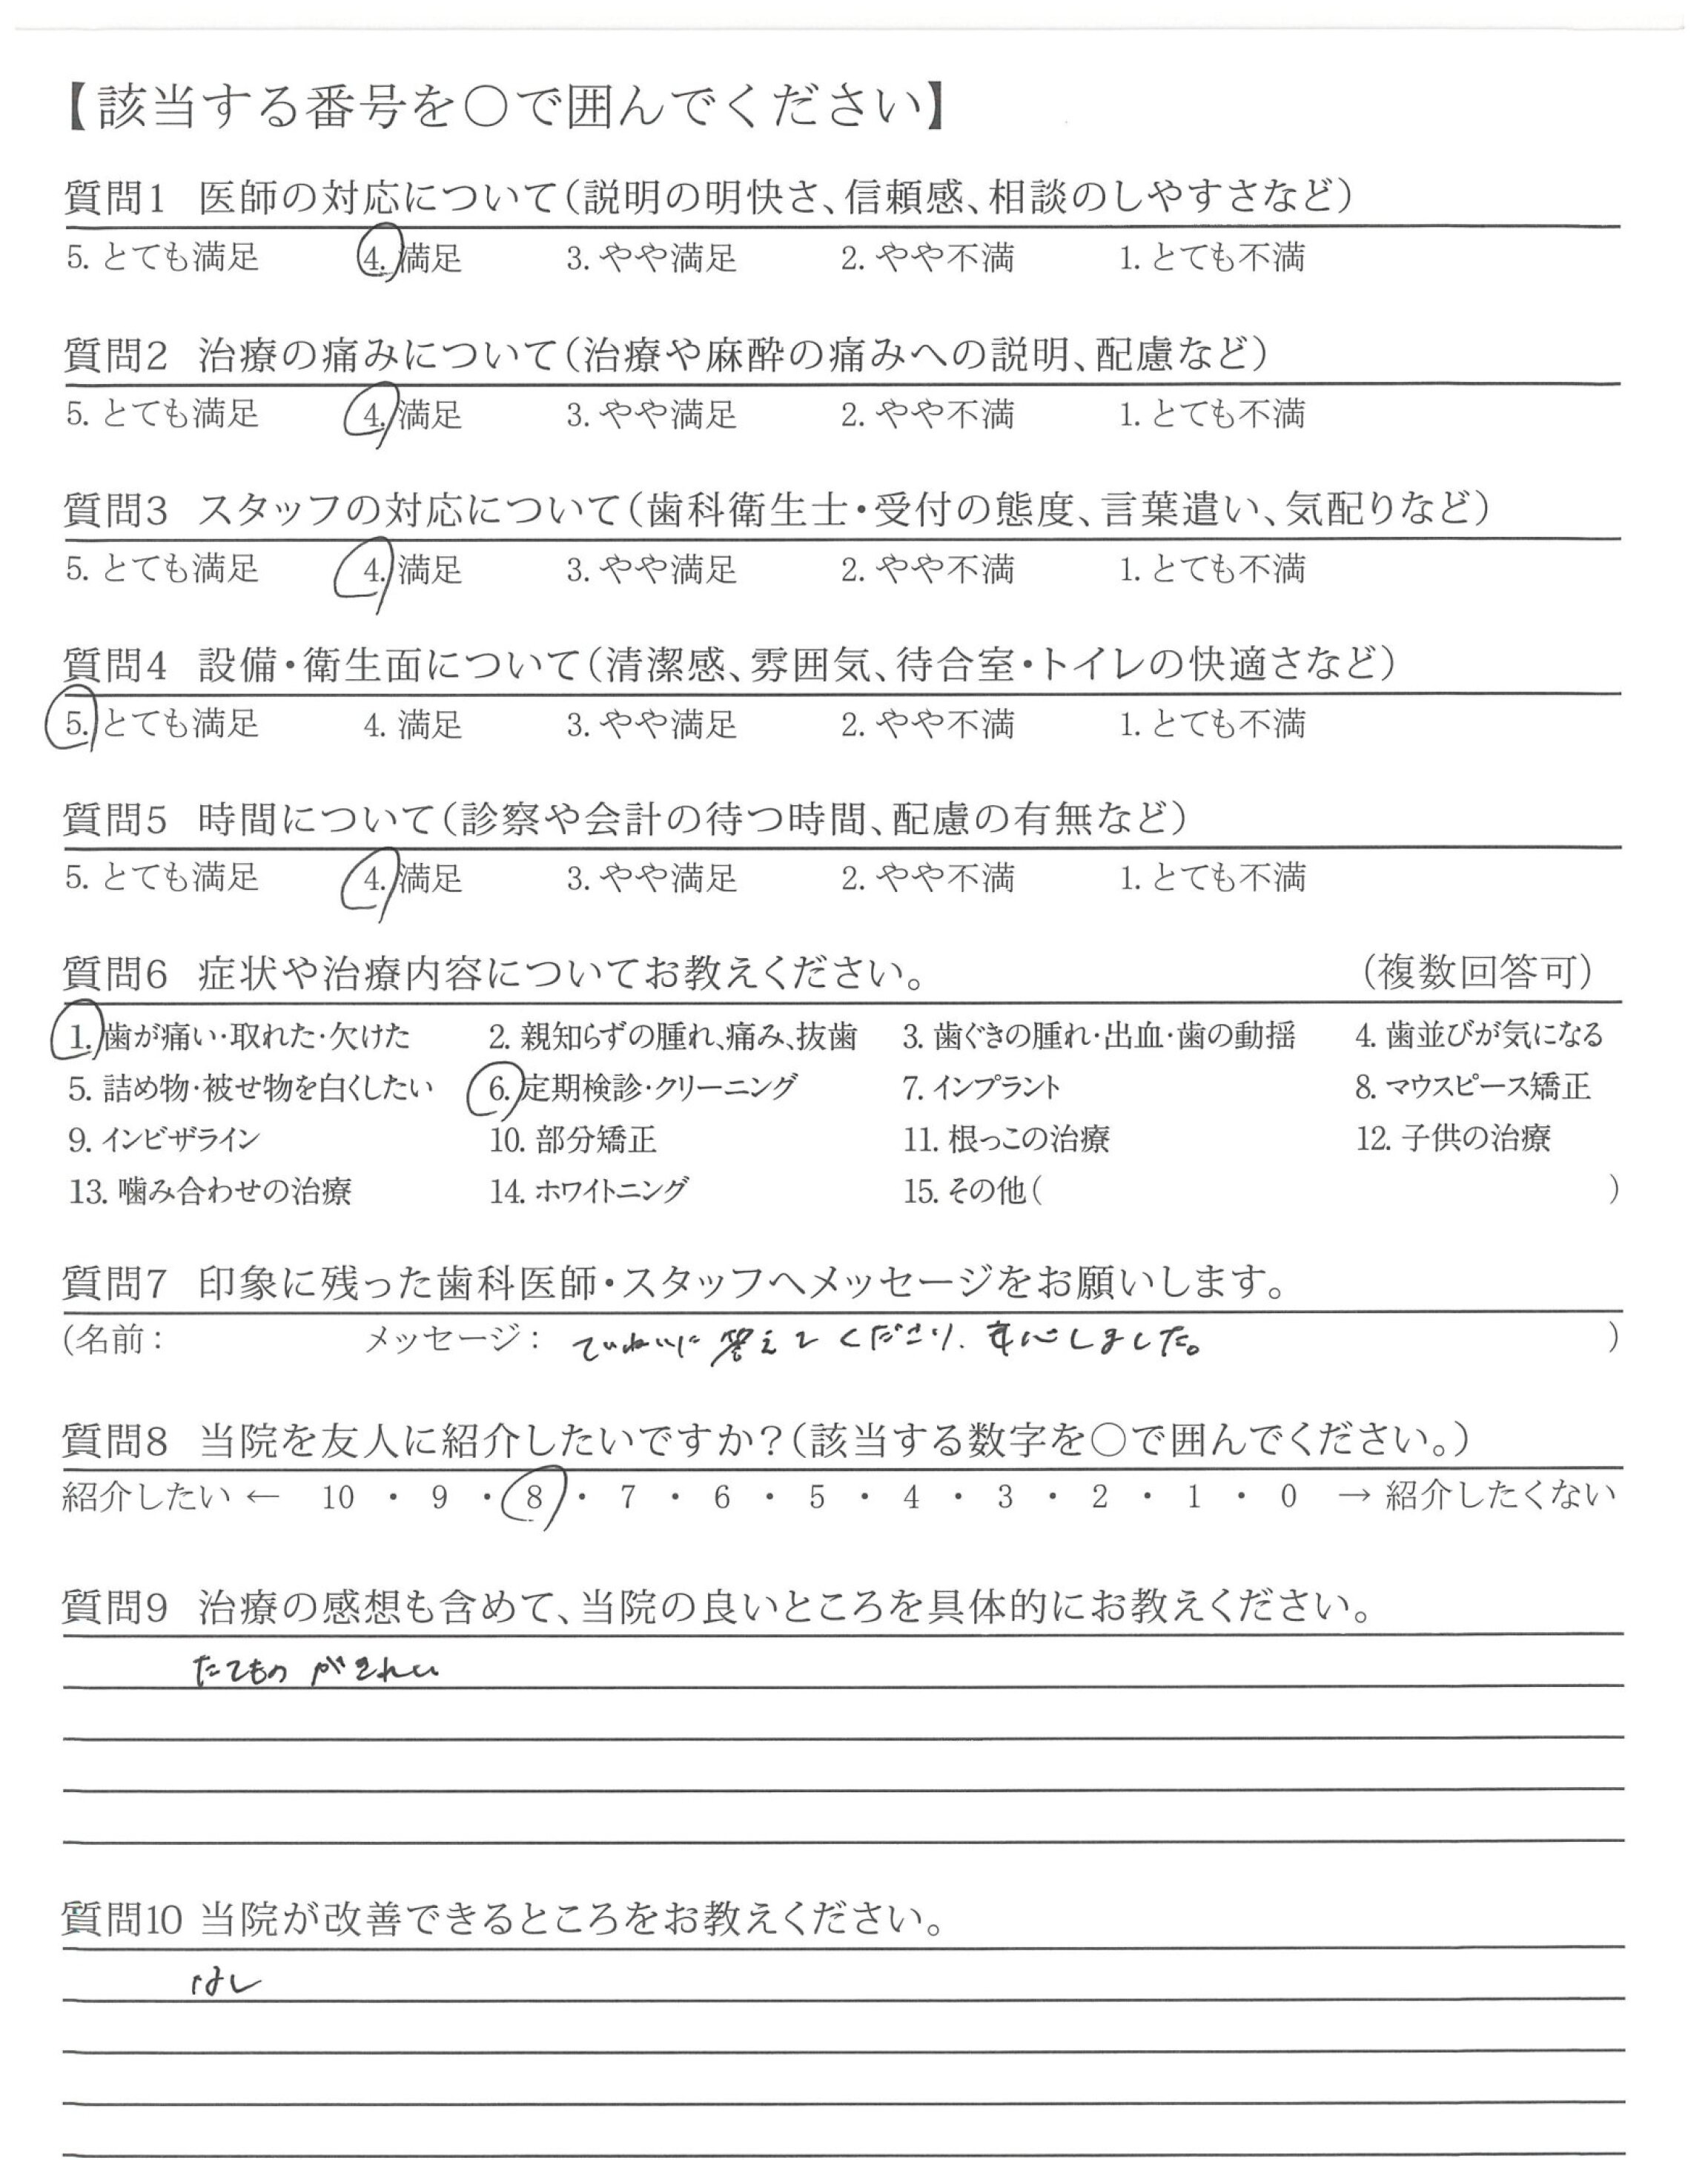 【該当する番号を○で囲んでください】
質問1 医師の対応について(説明の明快さ、信頼感、相談のしやすさなど)
5. とても満足 4. 満足 3. やや満足 2. やや不満 1. とても不満
質問2 治療の痛みについて(治療や麻酔の痛みへの説明、配慮など)
5. とても満足 4. 満足 3. やや満足 2. やや不満 1. とても不満
質問3 スタッフの対応について(歯科衛生士・受付の態度、言葉遣い、気配りなど)
5. とても満足 4. 満足 3. やや満足 2. やや不満 1. とても不満
質問4 設備・衛生面について(清潔感、雰囲気、待合室・トイレの快適さなど)
5. とても満足 4. 満足 3. やや満足 2. やや不満 1. とても不満
質問5 時間について(診察や会計の待つ時間、配慮の有無など)
5. とても満足 4. 満足 3. やや満足 2. やや不満 1. とても不満
質問6 症状や治療内容についてお教えください。 (複数回答可)
1. 歯が痛い・取れた・欠けた 2. 親知らずの腫れ、痛み、抜歯 3. 歯ぐきの腫れ・出血・歯の動揺 4. 歯並びが気になる
5. 詰め物・被せ物を白くしたい 6. 定期検診・クリーニング 7. インプラント 8. マウスピース矯正
9. インビザライン 10. 部分矯正 11. 根っこの治療 12. 子供の治療
13. 噛み合わせの治療 14. ホワイトニング 15. その他( )
質問7 印象に残った歯科医師・スタッフへメッセージをお願いします。
(名前: メッセージ: ていねいに答えてくださり、安心しました。 )
質問8 当院を友人に紹介したいですか?(該当する数字を○で囲んでください。)
紹介したい ← 10 ・ 9 ・ 8 ・ 7 ・ 6 ・ 5 ・ 4 ・ 3 ・ 2 ・ 1 ・ 0 → 紹介したくない
質問9 治療の感想も含めて、当院の良いところを具体的にお教えください。
たてものがきれい
質問10 当院が改善できるところをお教えください。
なし